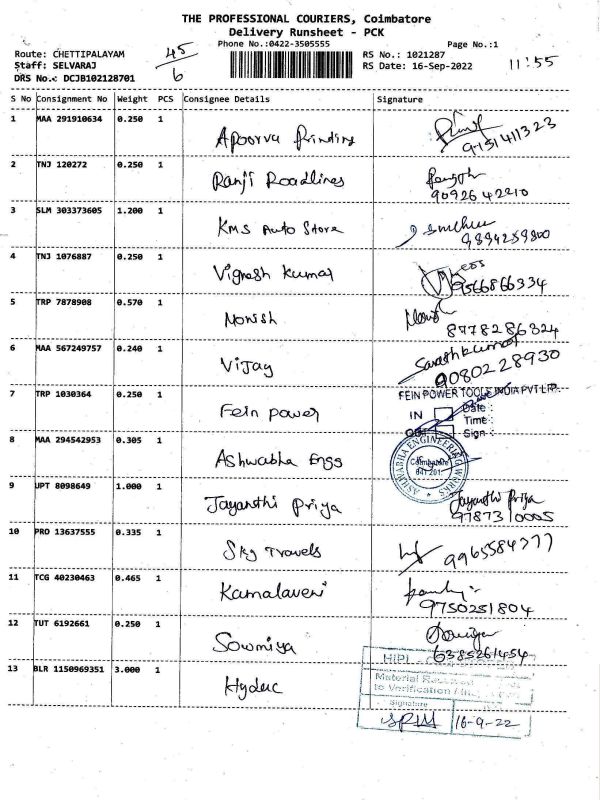 THE PROFESSIONAL COURIERS, Coimbatore
Delivery Runsheet - PCK
Phone No.:0422-3505555
Page No.:1
Route: CHETTIPALAYAM
Staff: SELVARAJ
DRS No.: DCJB102128701
45/6
RS No.: 1021287
RS Date: 16-Sep-2022
11:55
S No Consignment No Weight PCS Consignee Details Signature
1 MAA 291910634 0.250 1 Apoorva Printing
9151411323
2 TNJ 120272 0.250 1 Ranji Roadlines
9092642210
3 SLM 303373605 1.200 1 KMS Auto Store
9894259800
4 TNJ 1076887 0.250 1 Vignesh Kumar
9566866334
5 TRP 7878908 0.570 1 Monish
8778286324
6 MAA 567249757 0.240 1 Vijay
Sarathkumar
9080228930
7 TRP 1030364 0.250 1 Fein Power
FEIN POWER TOOLS INDIA PVT LTD.
IN Date :
Time :
OUT Sign :
8 MAA 294542953 0.305 1 Ashwabha Engg
ASHWABHA ENGINEERING WORKS
Coimbatore
641 201
9 JPT 8098649 1.000 1 Jayanthi Priya
Jayanthi Priya
9787310005
10 PRO 13637555 0.335 1 Skg Travels
9965584777
11 TCG 40230463 0.465 1 Kamalaveni
9750251804
12 TUT 6192661 0.250 1 Sowmiya
6385261454
13 BLR 1150969351 3.000 1 Hydec
HIPL
Material Received
to Verification
Signature
16-9-22